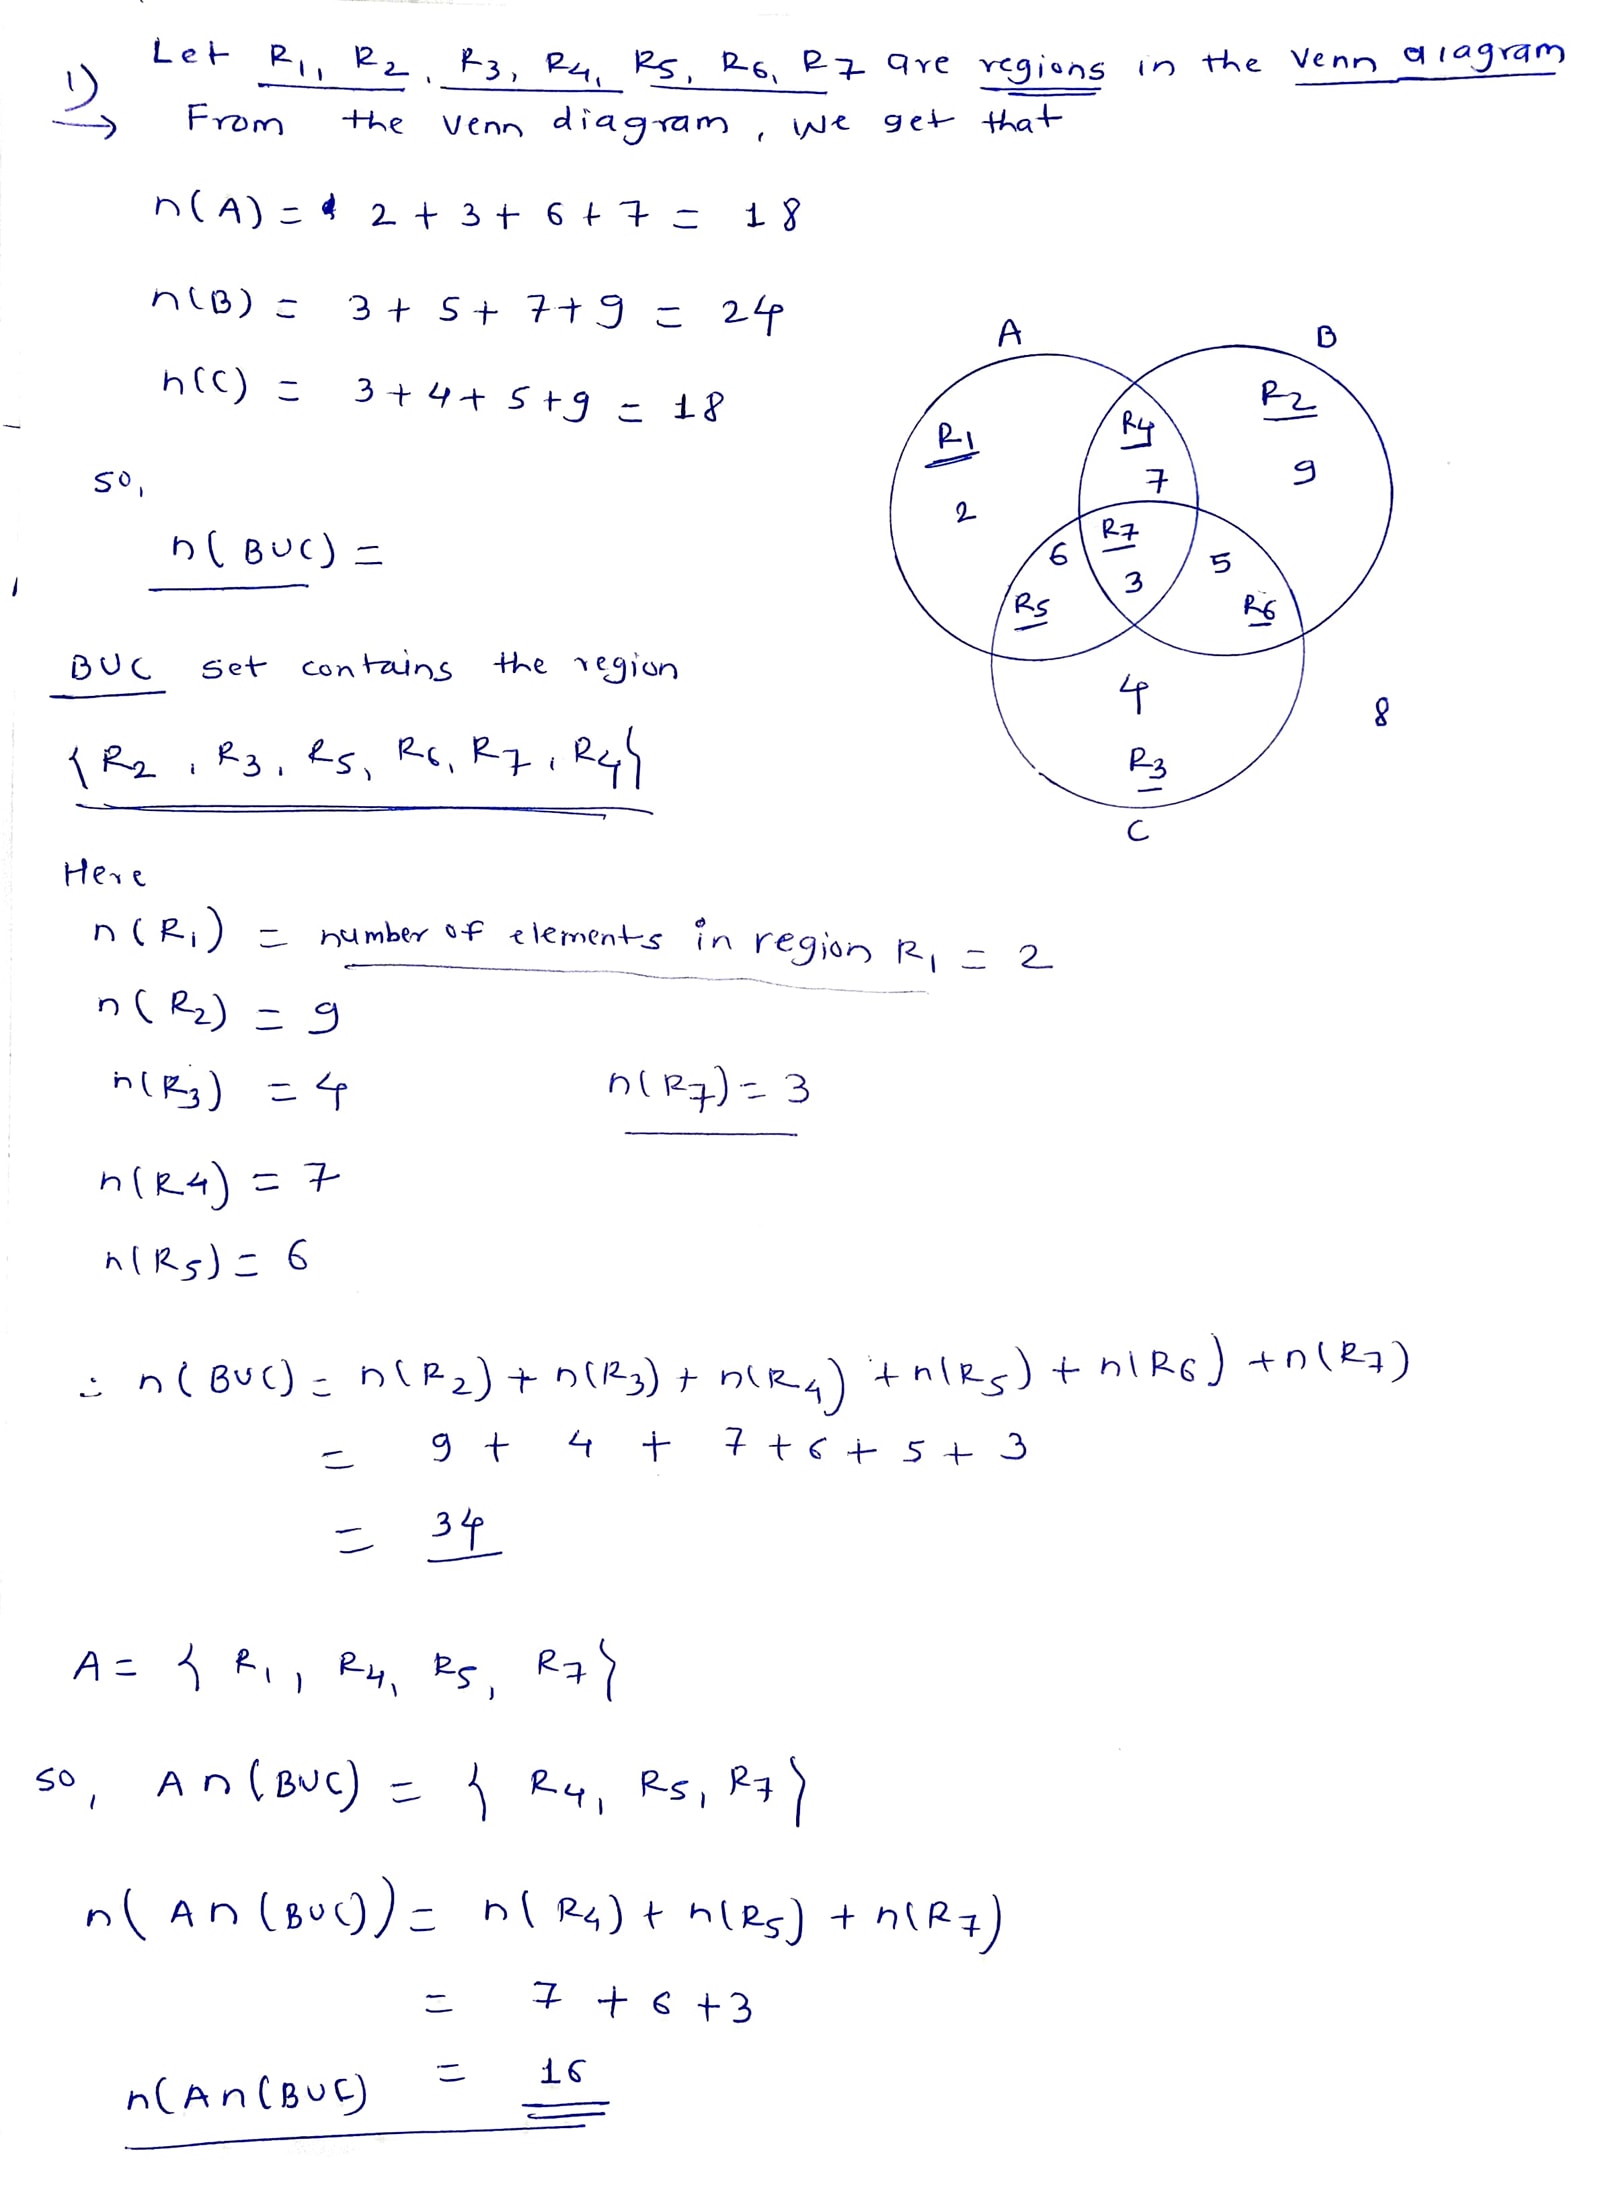 1) Let R1, R2, R3, R4, R5, R6, R7 are regions in the Venn diagram
→ From the venn diagram, we get that
n(A) = 2 + 3 + 6 + 7 = 18
n(B) = 3 + 5 + 7 + 9 = 24
n(C) = 3 + 4 + 5 + 9 = 18
so,
n(B∪C) =
B∪C set contains the region
{R2, R3, R5, R6, R7, R4}
A
B
R1
2
R4
7
R2
9
R7
3
6
R5
5
R6
4
R3
8
C
Here
n(R1) = number of elements in region R1 = 2
n(R2) = 9
n(R3) = 4
n(R7) = 3
n(R4) = 7
n(R5) = 6
∴ n(B∪C) = n(R2) + n(R3) + n(R4) + n(R5) + n(R6) + n(R7)
= 9 + 4 + 7 + 6 + 5 + 3
= 34
A = {R1, R4, R5, R7}
so, A∩(B∪C) = {R4, R5, R7}
n(A∩(B∪C)) = n(R4) + n(R5) + n(R7)
= 7 + 6 + 3
n(A∩(B∪C) = 16